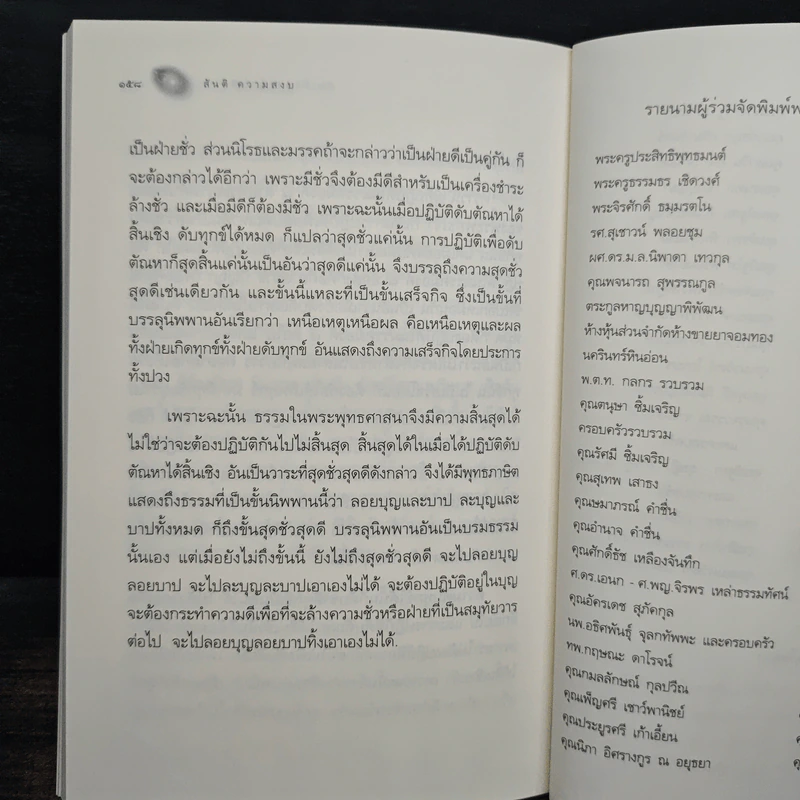 ๑๕๘ สันติ ความสงบ
เป็นฝ่ายชั่ว ส่วนนิโรธและมรรคถ้าจะกล่าวว่าเป็นฝ่ายดีเป็นคู่กัน ก็
จะต้องกล่าวได้อีกว่า เพราะมีชั่วจึงต้องมีดีสำหรับเป็นเครื่องชำระ
ล้างชั่ว และเมื่อมีดีก็ต้องมีชั่ว เพราะฉะนั้นเมื่อปฏิบัติดับตัณหาได้
สิ้นเชิง ดับทุกข์ได้หมด ก็แปลว่าสุดชั่วแค่นั้น การปฏิบัติเพื่อดับ
ตัณหาก็สุดสิ้นแค่นั้นเป็นอันว่าสุดดีแค่นั้น จึงบรรลุถึงความสุดชั่ว
สุดดีเช่นเดียวกัน และขั้นนี้แหละที่เป็นขั้นเสร็จกิจ ซึ่งเป็นขั้นที่
บรรลุนิพพานอันเรียกว่า เหนือเหตุเหนือผล คือเหนือเหตุและผล
ทั้งฝ่ายเกิดทุกข์ทั้งฝ่ายดับทุกข์ อันแสดงถึงความเสร็จกิจโดยประการ
ทั้งปวง
เพราะฉะนั้น ธรรมในพระพุทธศาสนาจึงมีความสิ้นสุดได้
ไม่ใช่ว่าจะต้องปฏิบัติกันไปไม่สิ้นสุด สิ้นสุดได้ในเมื่อได้ปฏิบัติดับ
ตัณหาได้สิ้นเชิง อันเป็นวาระที่สุดชั่วสุดดีดังกล่าว จึงได้มีพุทธภาษิต
แสดงถึงธรรมที่เป็นขั้นนิพพานนี้ว่า ลอยบุญและบาป ละบุญและ
บาปทั้งหมด ก็ถึงขั้นสุดชั่วสุดดี บรรลุนิพพานอันเป็นบรมธรรม
นั้นเอง แต่เมื่อยังไม่ถึงขั้นนี้ ยังไม่ถึงสุดชั่วสุดดี จะไปลอยบุญ
ลอยบาป จะไปละบุญละบาปเอาเองไม่ได้ จะต้องปฏิบัติอยู่ในบุญ
จะต้องกระทำความดีเพื่อที่จะล้างความชั่วหรือฝ่ายที่เป็นสมุทัยวาร
ต่อไป จะไปลอยบุญลอยบาปทิ้งเอาเองไม่ได้.
รายนามผู้ร่วมจัดพิมพ์
พระครูประสิทธิพุทธมนต์
พระครูธรรมธร เชิดวงศ์
พระจิรศักดิ์ ธมฺมรตโน
รศ.สุเชาวน์ พลอยชุม
ผศ.ดร.ม.ล.นิพาดา เทวกุล
คุณพจนารถ สุพรรณกูล
ตระกูลหาญบุญญาพิพัฒน
ห้างหุ้นส่วนจำกัดห้างขายยาจอมทอง
นครินทร์หินอ่อน
พ.ต.ท. กลกร รวบรวม
คุณตนุษา ซิ้มเจริญ
ครอบครัวรวบรวม
คุณรัศมี ซิ้มเจริญ
คุณสุเทพ เสาธง
คุณษมาภรณ์ คำชื่น
คุณอำนาจ คำชื่น
คุณศักดิ์ธัช เหลืองจันทึก
ศ.ดร.เอนก - ศ.พญ.จิรพร เหล่าธรรมทัศน์
คุณอัครเดช สุภัคกุล
นพ.อธิศพันธุ์ จุลกทัพพะ และครอบครัว
ทพ.กฤษณะ ดาโรจน์
คุณกมลลักษณ์ กุลปวีณ
คุณเพ็ญศรี เชาว์พานิชย์
คุณประยูรศรี เก้าเอี้ยน
คุณนิภา อิศรางกูร ณ อยุธยา